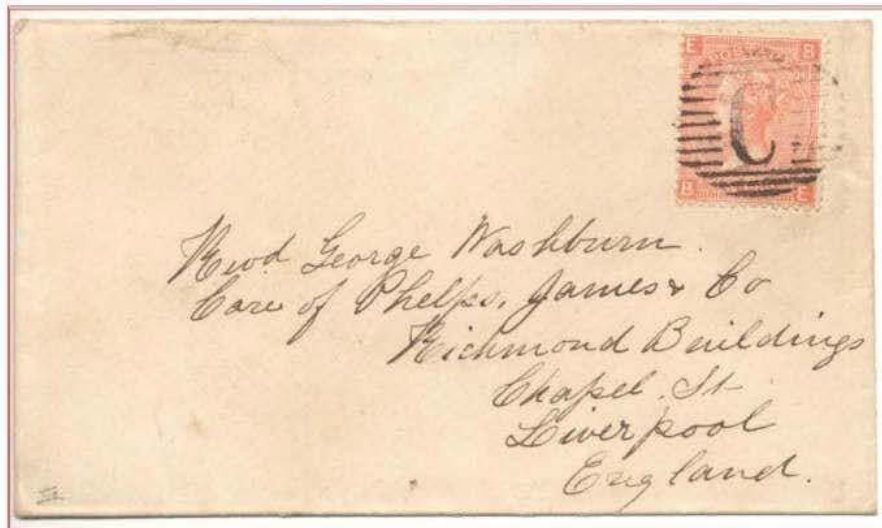 E B
C
B E
Revd George Washburn.
Care of Phelps, James & Co
Richmond Buildings
Chapel. St
Liverpool
England.